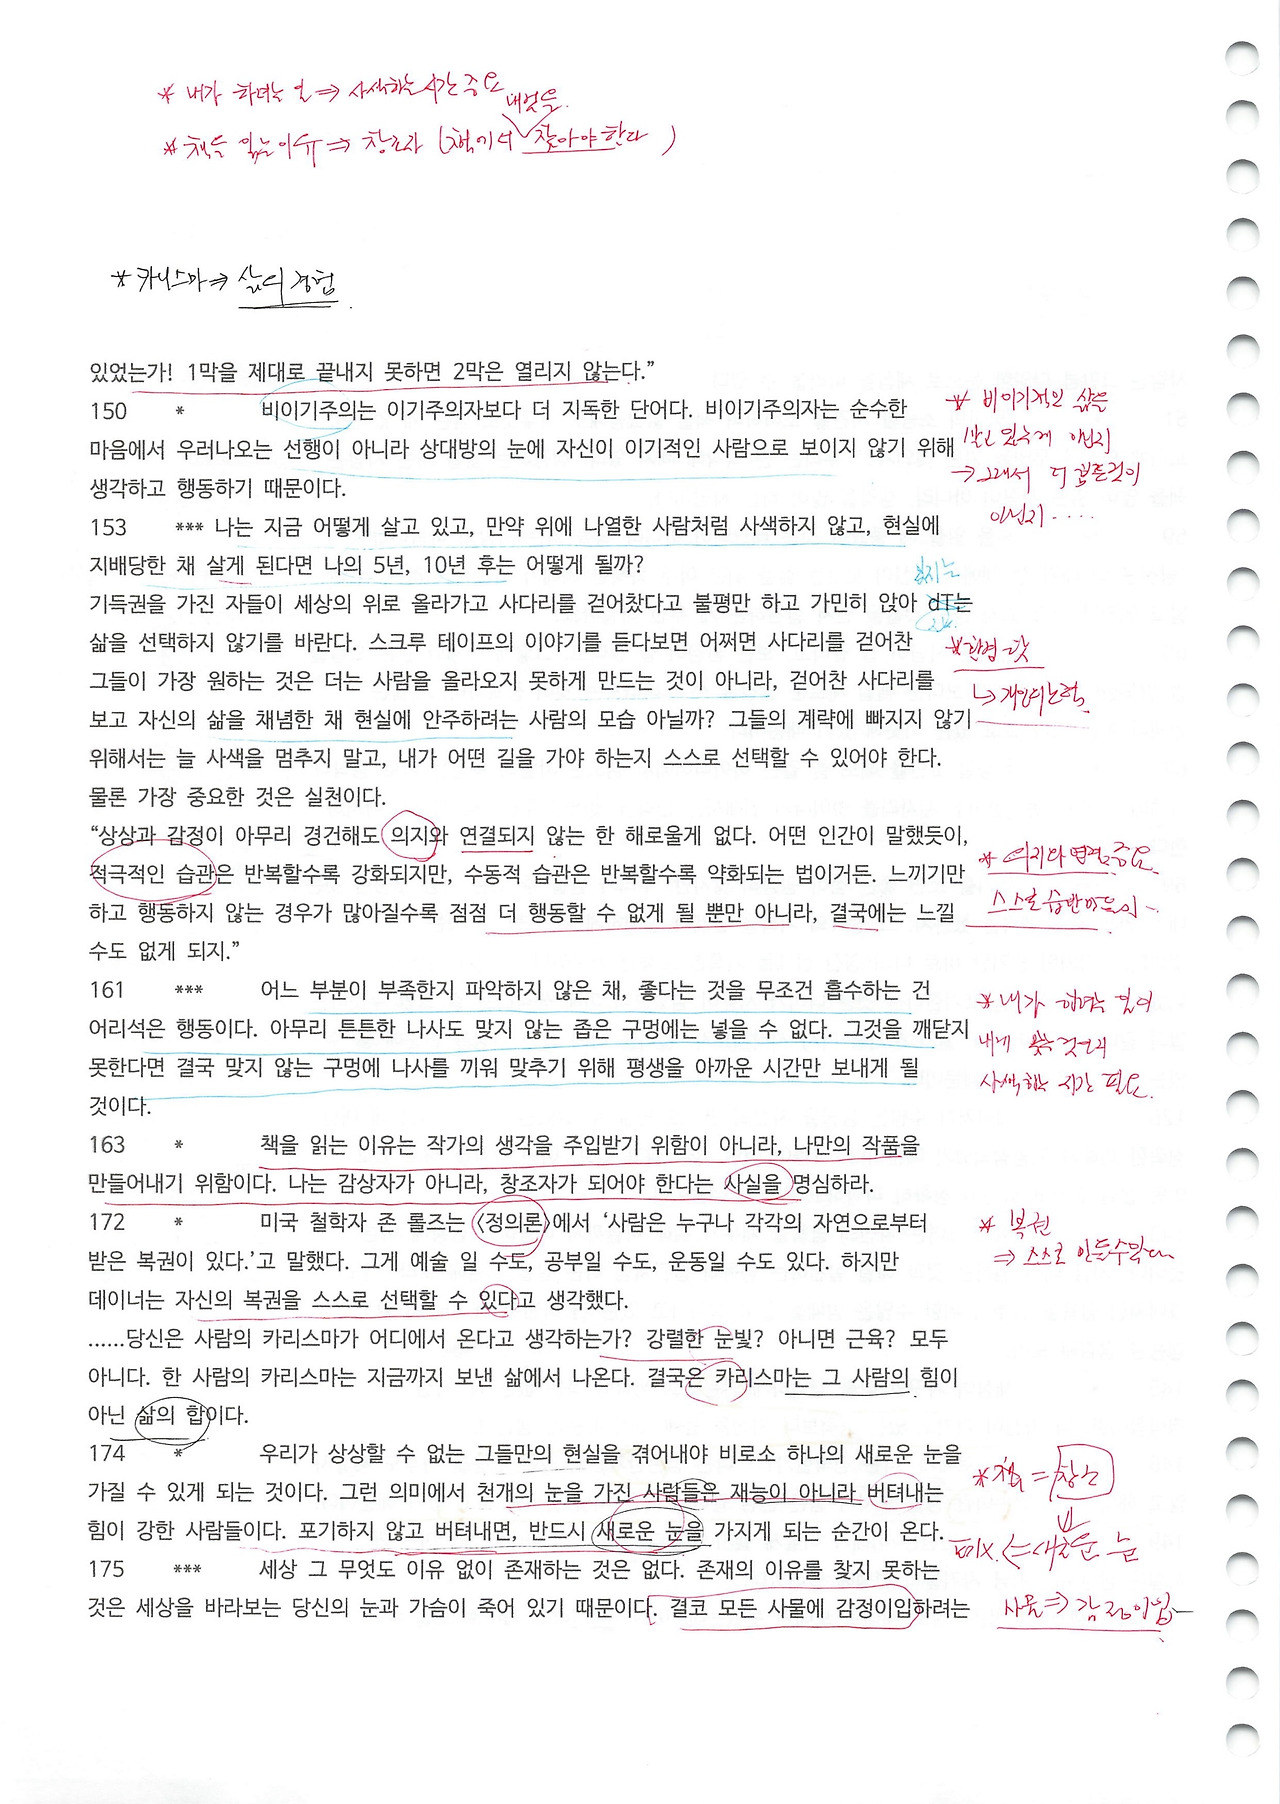 * 내가 하려는 일 ⇒ 사색하는 시간 중요
내 것을
* 책을 읽는 이유 ⇒ 창조자 (책에서 찾아야 한다)
* 카리스마 ⇒ 삶의 경험
있었는가! 1막을 제대로 끝내지 못하면 2막은 열리지 않는다.”
150 * 비이기주의는 이기주의자보다 더 지독한 단어다. 비이기주의자는 순수한
마음에서 우러나오는 선행이 아니라 상대방의 눈에 자신이 이기적인 사람으로 보이지 않기 위해
생각하고 행동하기 때문이다.
* 비이기적인 삶을
살고 있는게 아닌지
→ 그래서 더 곪은것이
아닌지 ....
153 *** 나는 지금 어떻게 살고 있고, 만약 위에 나열한 사람처럼 사색하지 않고, 현실에
지배당한 채 살게 된다면 나의 5년, 10년 후는 어떻게 될까?
기득권을 가진 자들이 세상의 위로 올라가고 사다리를 걷어찼다고 불평만 하고 가민히 앉아 dT는
삶을 선택하지 않기를 바란다. 스크루 테이프의 이야기를 듣다보면 어쩌면 사다리를 걷어찬
그들이 가장 원하는 것은 더는 사람을 올라오지 못하게 만드는 것이 아니라, 걷어찬 사다리를
보고 자신의 삶을 채념한 채 현실에 안주하려는 사람의 모습 아닐까? 그들의 계략에 빠지지 않기
위해서는 늘 사색을 멈추지 말고, 내가 어떤 길을 가야 하는지 스스로 선택할 수 있어야 한다.
물론 가장 중요한 것은 실천이다.
* 환경 탓
↳ 개인의 노력
“상상과 감정이 아무리 경건해도 의지와 연결되지 않는 한 해로울게 없다. 어떤 인간이 말했듯이,
적극적인 습관은 반복할수록 강화되지만, 수동적 습관은 반복할수록 약화되는 법이거든. 느끼기만
하고 행동하지 않는 경우가 많아질수록 점점 더 행동할 수 없게 될 뿐만 아니라, 결국에는 느낄
수도 없게 되지.”
* 의지와 연결 중요
스스로 습관
161 *** 어느 부분이 부족한지 파악하지 않은 채, 좋다는 것을 무조건 흡수하는 건
어리석은 행동이다. 아무리 튼튼한 나사도 맞지 않는 좁은 구멍에는 넣을 수 없다. 그것을 깨닫지
못한다면 결국 맞지 않는 구멍에 나사를 끼워 맞추기 위해 평생을 아까운 시간만 보내게 될
것이다.
* 내가 하려는 일이
내게 맞는 것인지
사색하는 시간 필요.
163 * 책을 읽는 이유는 작가의 생각을 주입받기 위함이 아니라, 나만의 작품을
만들어내기 위함이다. 나는 감상자가 아니라, 창조자가 되어야 한다는 사실을 명심하라.
172 * 미국 철학자 존 롤즈는 〈정의론〉에서 ‘사람은 누구나 각각의 자연으로부터
받은 복권이 있다.’고 말했다. 그게 예술 일 수도, 공부일 수도, 운동일 수도 있다. 하지만
데이너는 자신의 복권을 스스로 선택할 수 있다고 생각했다.
* 복권
⇒ 스스로 만들수 있다.
......당신은 사람의 카리스마가 어디에서 온다고 생각하는가? 강렬한 눈빛? 아니면 근육? 모두
아니다. 한 사람의 카리스마는 지금까지 보낸 삶에서 나온다. 결국은 카리스마는 그 사람의 힘이
아닌 삶의 합이다.
174 * 우리가 상상할 수 없는 그들만의 현실을 겪어내야 비로소 하나의 새로운 눈을
가질 수 있게 되는 것이다. 그런 의미에서 천개의 눈을 가진 사람들은 재능이 아니라 버텨내는
힘이 강한 사람들이다. 포기하지 않고 버텨내면, 반드시 새로운 눈을 가지게 되는 순간이 온다.
* 책 = 창조
⇐ 새로운 눈
175 *** 세상 그 무엇도 이유 없이 존재하는 것은 없다. 존재의 이유를 찾지 못하는
것은 세상을 바라보는 당신의 눈과 가슴이 죽어 있기 때문이다. 결코 모든 사물에 감정이입하려는
사물 ⇒ 감정이입